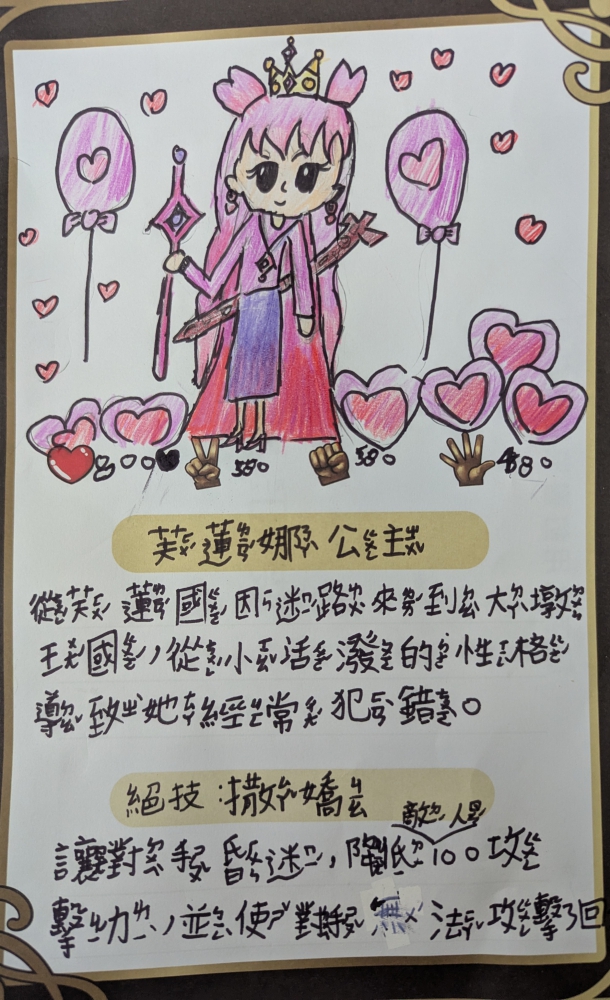 800 580 580 480
芙蓮娜公主
從芙蓮國因迷路來到大墩
王國，從小活潑的性格
導致她經常犯錯。
絕技：撒嬌
敵人
讓對手昏迷，降低100攻
擊力，並使對手無法攻擊3回